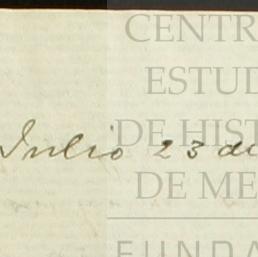 CENTR
ESTUD
DE HIST
Julio 23 de
DE ME
FUNDA